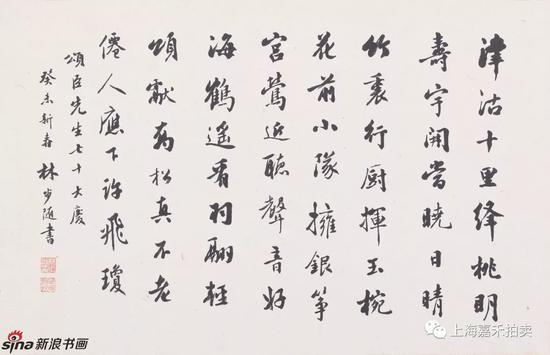 津沽十里絳桃明
壽宇開當曉日晴
竹裏行厨揮玉椀
花前小隊擁銀箏
宮鶯近聽聲音好
海鶴遥看羽翮輕
頌獻松真不老
僊人應下許飛瓊
頌臣先生七十大慶
癸未新春 林步随書
sina新浪书画
上海嘉禾拍卖